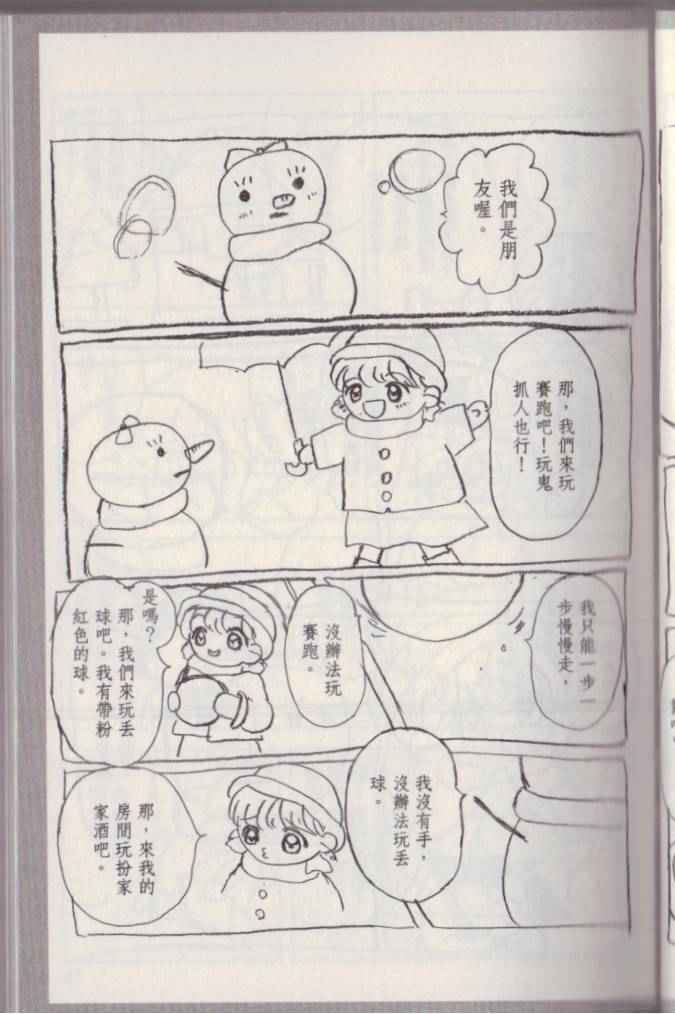 我們是朋
友喔。
那，我們來玩
賽跑吧！玩鬼
抓人也行！
我只能一步一
步慢慢走，
沒辦法玩
賽跑。
是嗎？
那，我們來玩丟
球吧。我有帶粉
紅色的球。
我沒有手，
沒辦法玩丟
球。
那，來我的
房間玩扮家
家酒吧。